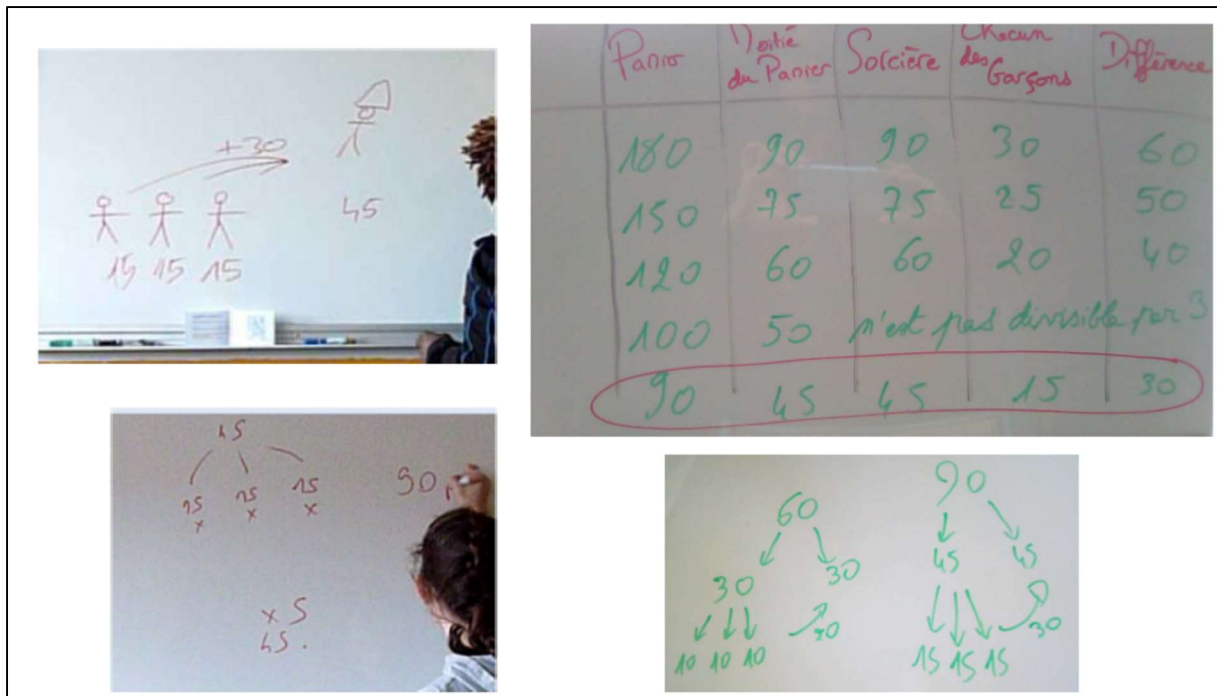 +30
45
15 15 15
Panier Moitié du Panier Sorcière Chacun des Garçons Différence
180 90 90 30 60
150 75 75 25 50
120 60 60 20 40
100 50 n'est pas divisible par 3
90 45 45 15 30
45
15 15 15
x x x
90
x S
45.
60
30 30
20
10 10 10
90
45 45
30
15 15 15